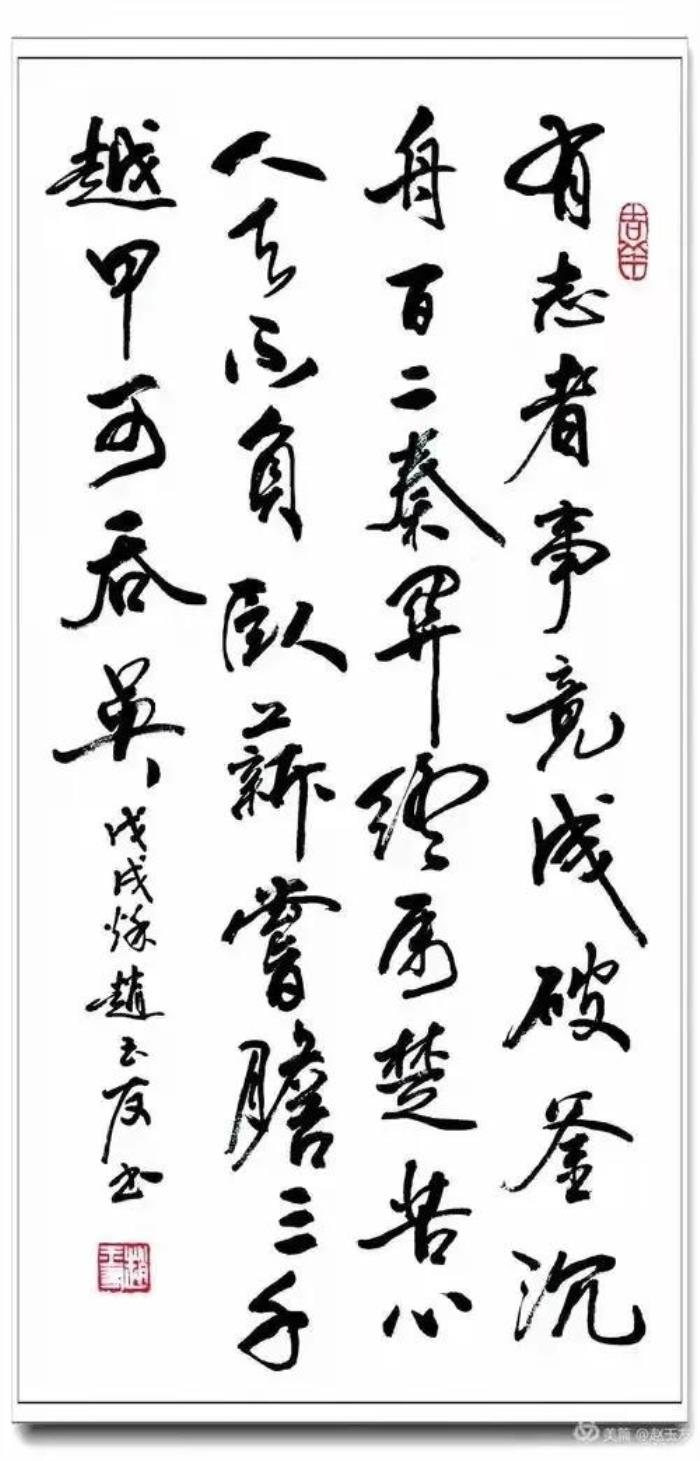 有志者事竟成破釜沉
舟百二秦関終属楚苦心
人天不負臥薪嘗膽三千
越甲可吞吳
戊戌秋趙玉友书
美篇 @赵玉友